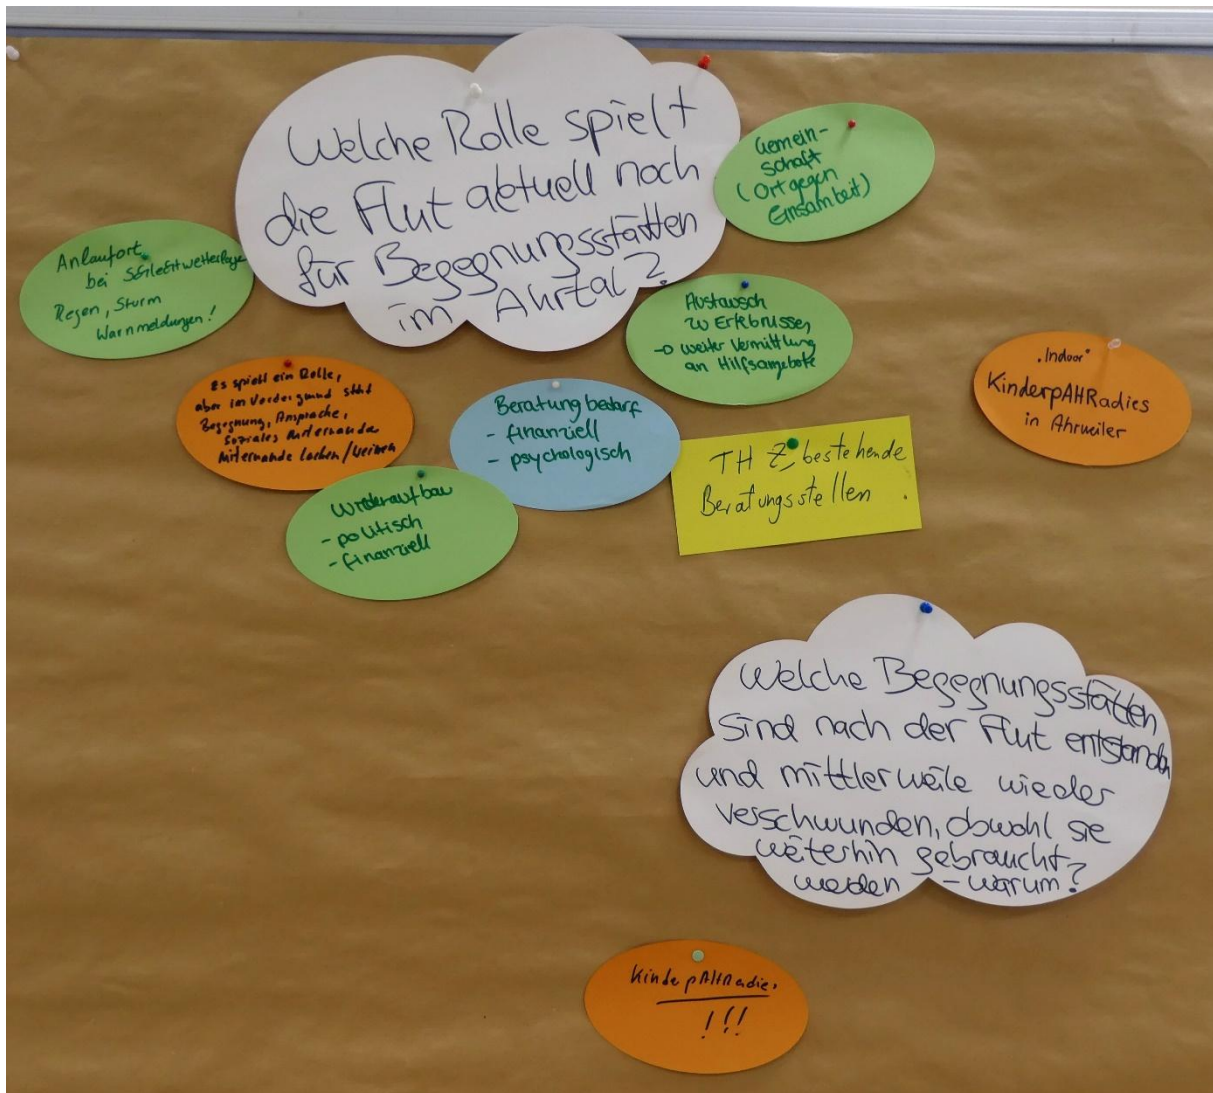 Welche Rolle spielt
die Flut aktuell noch
für Begegnungsstätten
im Ahrtal?
Gemein-
schaft
(Ort gegen
Einsamkeit)
Anlaufort
bei Schlechtwetterlage
Regen, Sturm
Warnmeldungen!
Austausch
zu Erlebnissen
→ weiter Vermittlung
an Hilfsangebote
"Indoor"
KinderpAHRadies
in Ahrweiler
Es spielt ein Rolle,
aber im Vordergrund steht
Begegnung, Ansprache,
soziales Miteinander
Miteinander lachen/weinen
Beratungbedarf
- finanziell
- psychologisch
THZ, bestehende
Beratungsstellen.
Wiederaufbau
- politisch
- finanziell
Welche Begegnungsstätten
sind nach der Flut entstanden
und mittlerweile wieder
verschwunden, obwohl sie
weiterhin gebraucht
werden - warum?
KinderpAHRadies
!!!